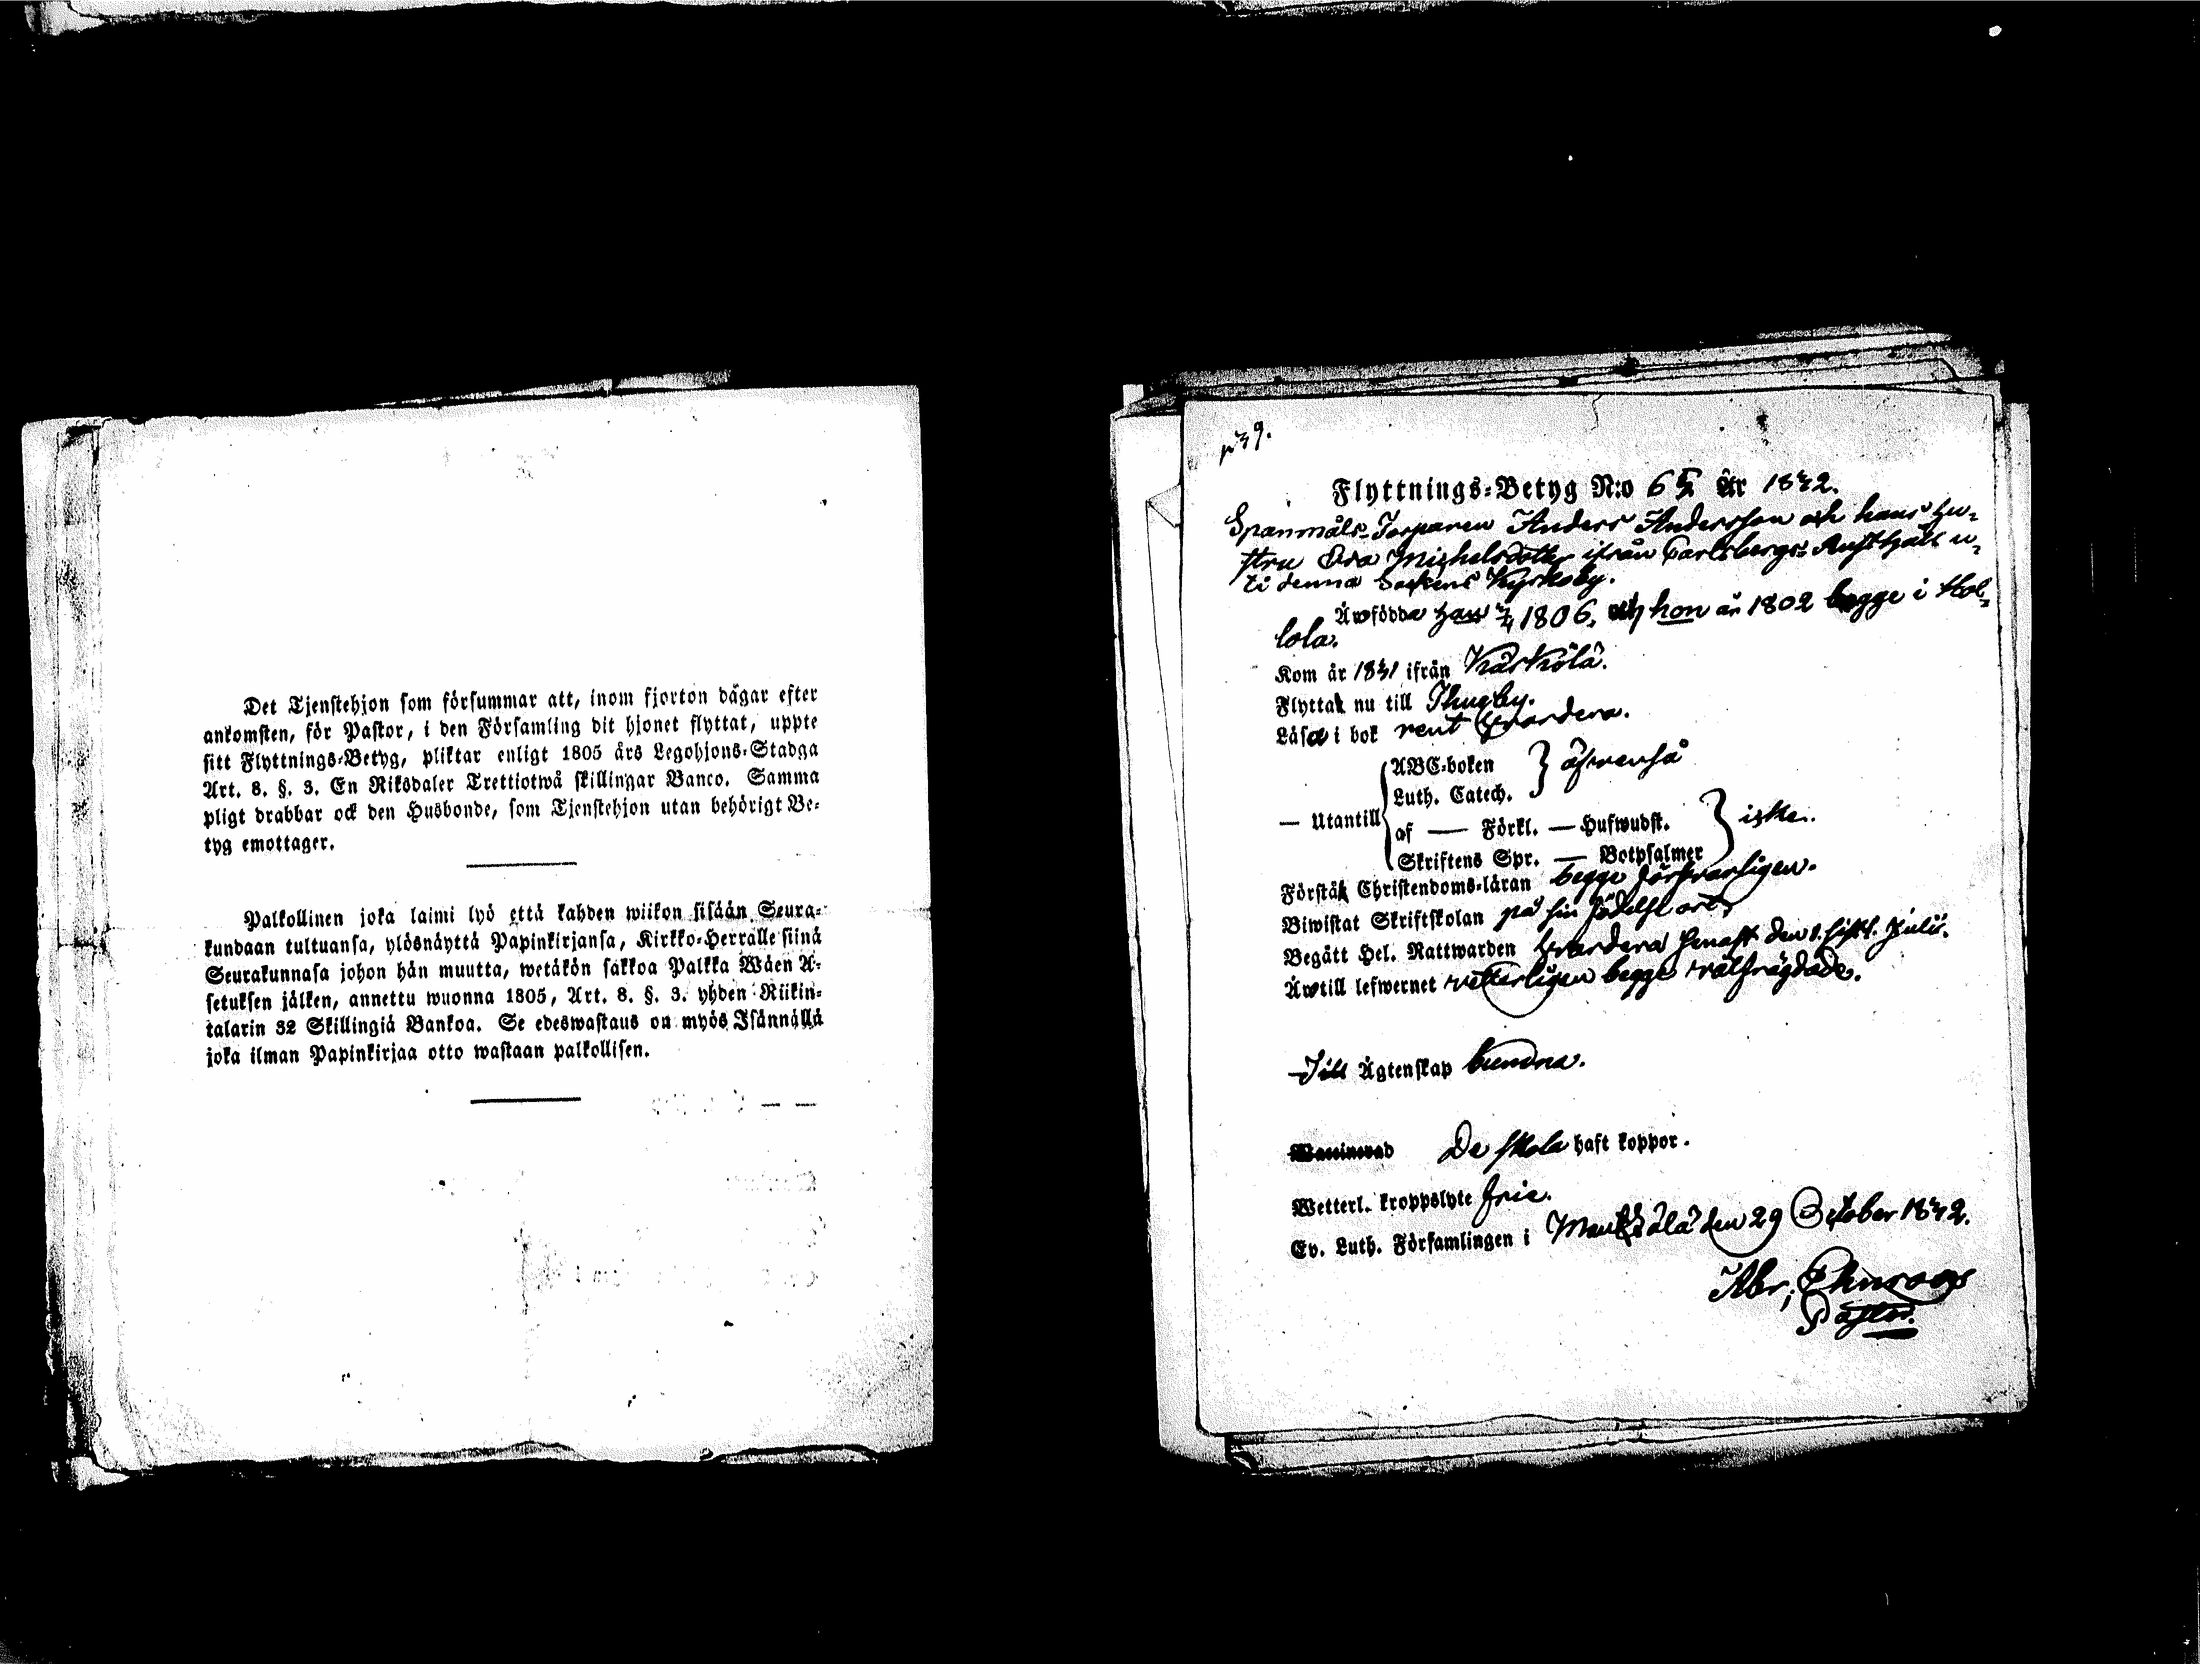 Det Tjenstehjon som försummar att, inom fjorton dagar efter
ankomsten, för Pastor, i den Församling dit hjonet flyttat, uppte
sitt Flyttnings-Betyg, pliktar enligt 1805 års Legohjons-Stadga
Art. 8. §. 3. En Riksdaler Trettiotwå skillingar Banco. Samma
pligt drabbar ock den Husbonde, som Tjenstehjon utan behörigt Be-
tyg emottager.
Palkollinen joka laimi lyö että kahden wiikon sisään Seura-
kundaan tultuansa, ylösnäyttä Papinkirjansa, Kirkko-Herralle siinä
Seurakunnasa johon hän muutta, wetäkön sakkoa Palkka Wäen A-
setuksen jälken, annettu wuonna 1805, Art. 8. §. 3. yhden Riikin-
talarin 32 Skillingiä Bankoa. Se edeswastaus on myös Isännällä
joka ilman Papinkirjaa otto wastaan palkollisen.
Flyttnings-Betyg N:o År 1842.
Spanmåls-Torparen Anders Andersson och hans Hu-
stru Eva Michelsdotter ifrån Carlsbergs u-
ti denna Sockens Kyrkoby.
Äro födda Han 1806. och hon år 1802 begge i Hol-
lola.
Kom år 1841 ifrån Kärkölä.
Flytta nu till Thusby.
Läsa i bok rent hvardera.
ABC-boken
Luth. Catech. } äfwenså
— Utantill af — Förkl. — Hufwudst.
Skriftens Spr. — Botpsalmer } icke.
Förstå Christendoms-läran begge försvarligen.
Biwistat Skriftskolan på sin födelse ort.
Begått Hel. Nattwarden hvardera senast den Julii.
Äro till lefwernet vetterligen begge välfrägdade.
Till Ägtenskap bundna.
Waccinerad De skola haft koppor.
Wetterl. kroppslyte frie.
Ev. Luth. Församlingen i den 29 October 1842.
Pastor.